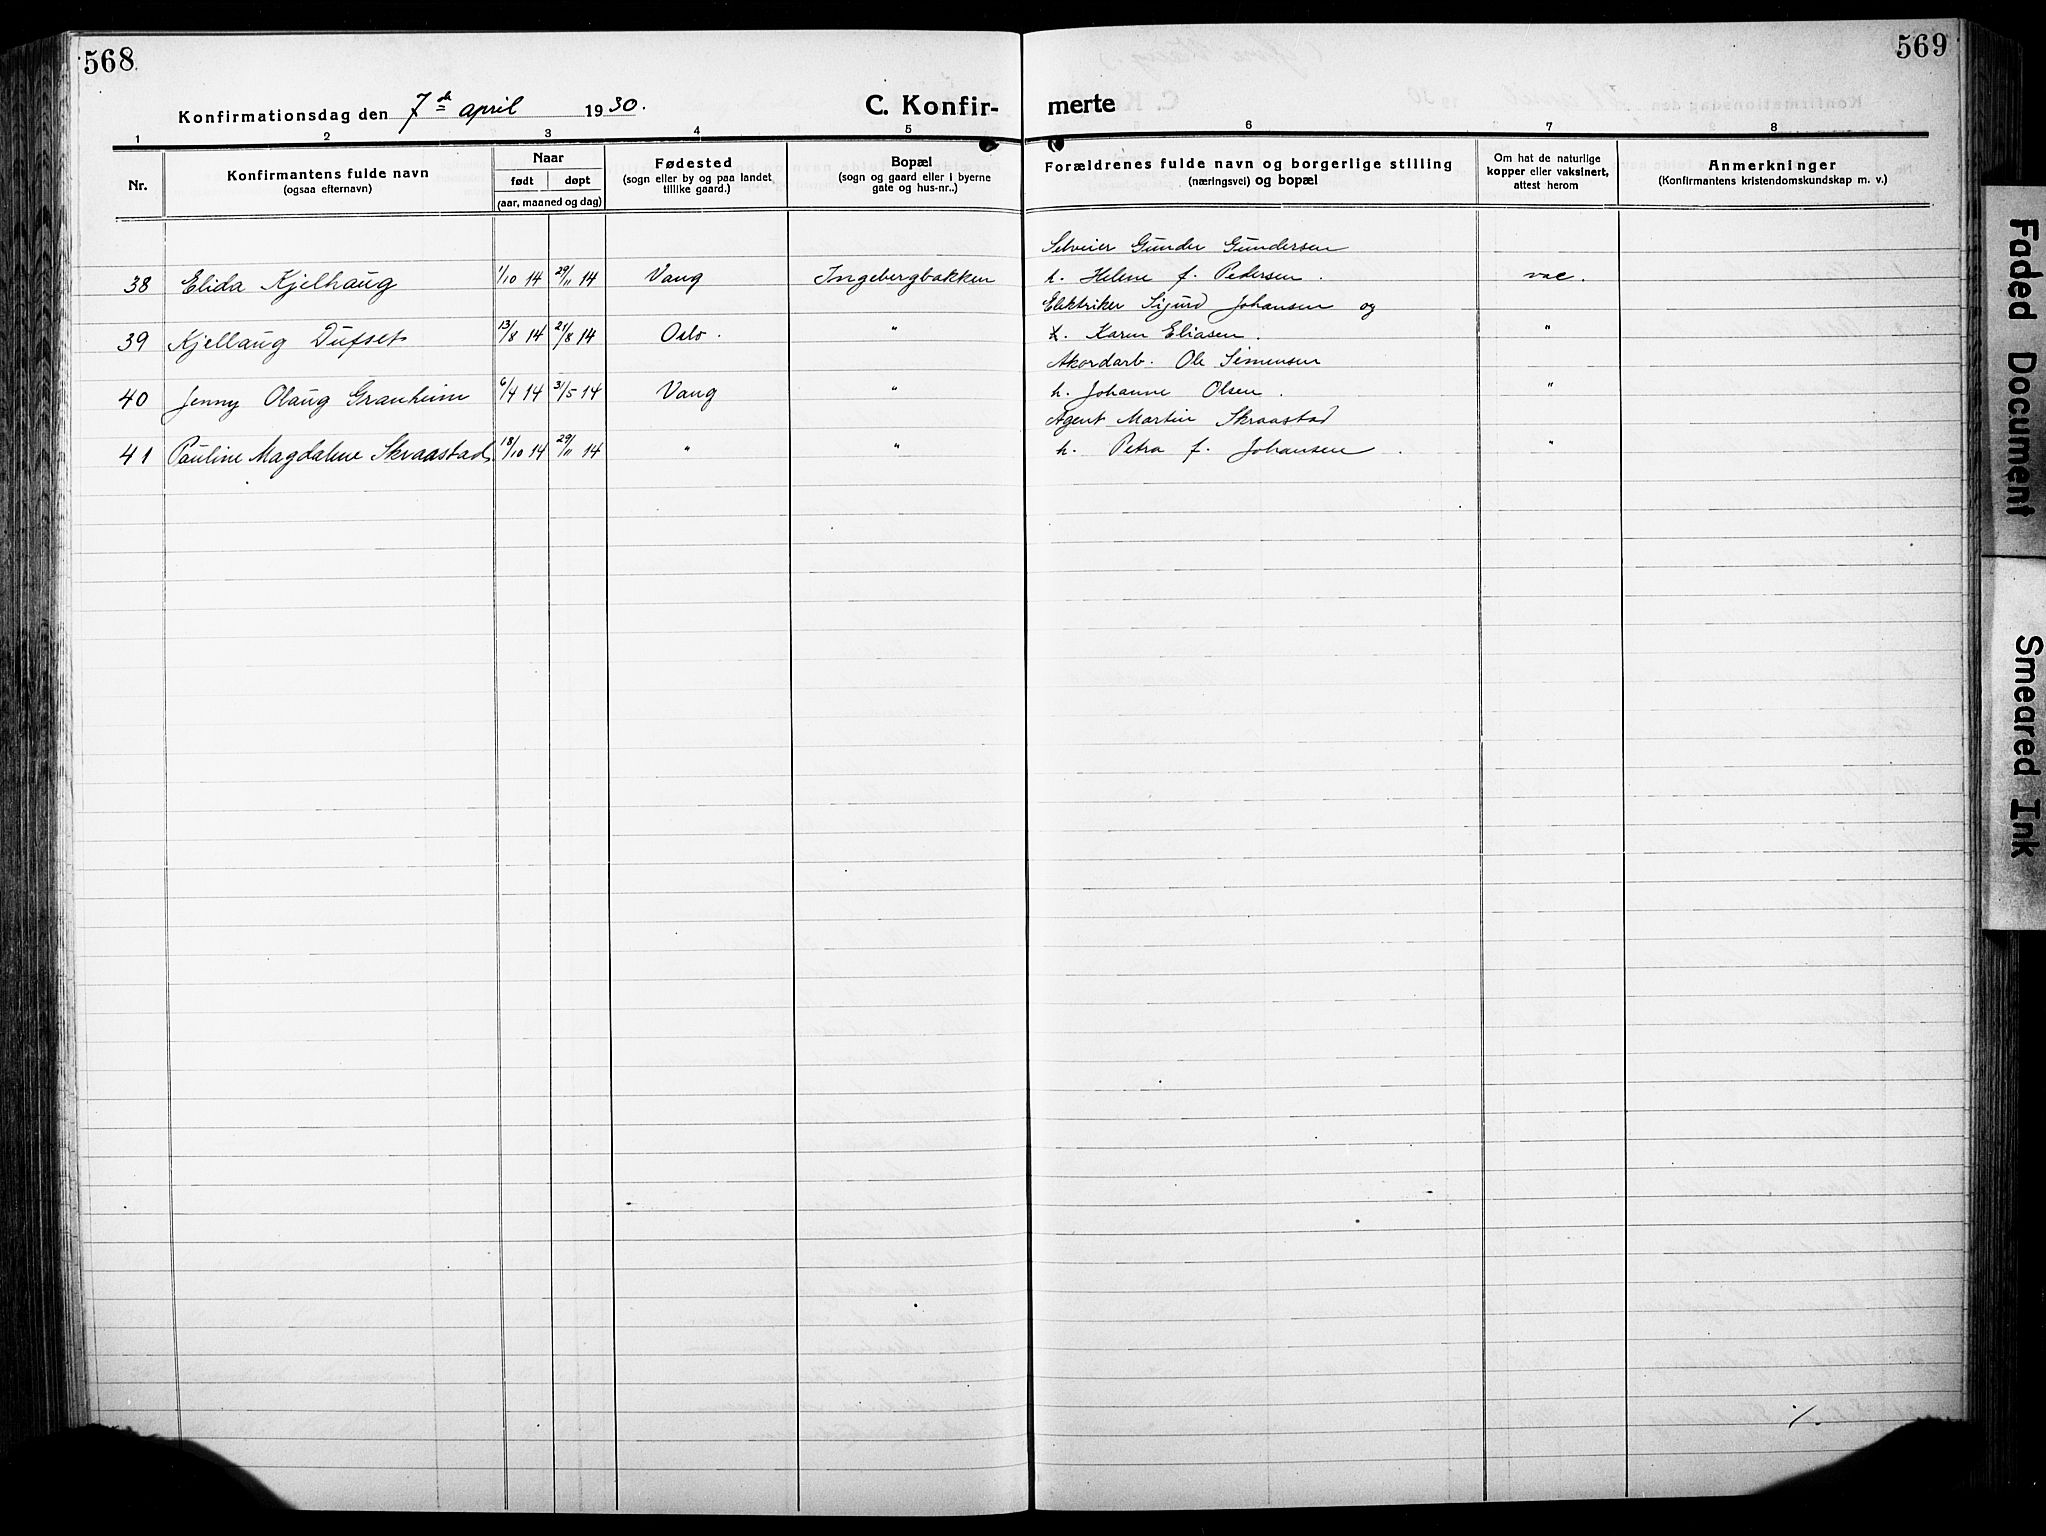 568
569
Konfirmationsdag den 7de april 1930.
C. Konfir-
merte
1 2 3 4 5 6 7 8
Nr.
Konfirmantens fulde navn
(ogsaa efternavn)
Naar
født døpt
(aar, maaned og dag)
Fødested
(sogn eller by og paa landet
tillike gaard.)
Bopæl
(sogn og gaard eller i byerne
gate og hus-nr..)
Forældrenes fulde navn og borgerlige stilling
(næringsvei) og bopæl
Om hat de naturlige
kopper eller vaksinert,
attest herom
Anmerkninger
(Konfirmantens kristendomskundskap m. v.)
Selveier Gunder Gundersen
38 Elida Kjelhaug 1/10 14 29/11 14 Vang Ingebergbakken h. Helene f. Pedersen. vac.
Elektriker Sigurd Johansen og
39 Kjellaug Dufset 13/8 14 21/8 14 Oslo. " Karen Eliasen. "
Akordarb. Ole Simensen
40 Jenny Olaug Granheim 6/4 14 31/5 14 Vang " h. Johanne Olsen. "
Agent Martin Skraastad
41 Pauline Magdalene Skraastad. 18/10 14 29/11 14 " " h. Petra f. Johansen. "
Faded Document
Smeared Ink